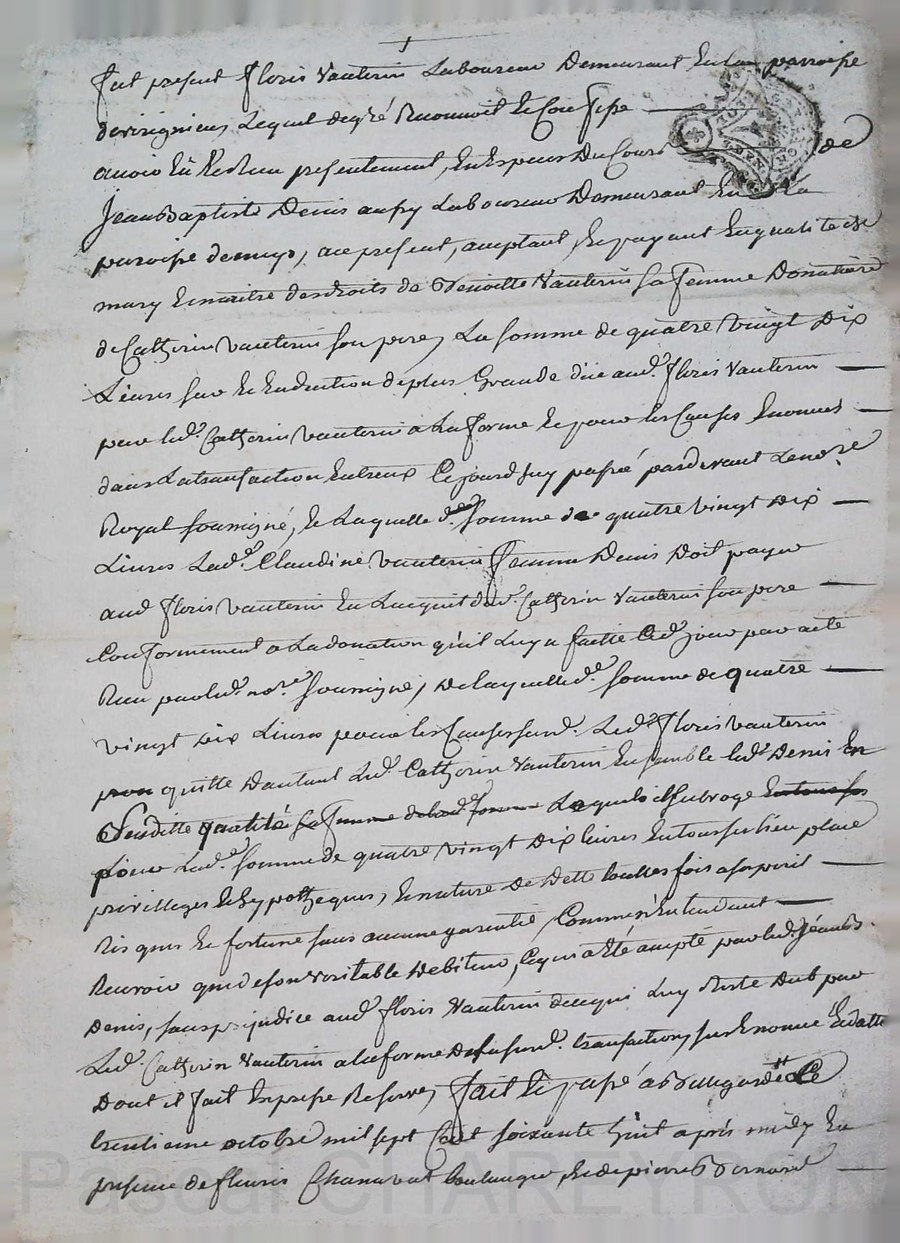 fut present floris vauterin Laboureur Demeurant En La parroisse
Lequel de gré Reconnoit Et Confesse
avoir Eû Et Reçu presentement, En Especes Du Cours de
Jean Baptiste Denis Laboureur Demeurant En La
paroisse ace present, aceptant, Et payant En qualite de
mary Et maitre des droits de Vauterin sa femme Donatière
de Catherin vauterin son pere, La somme de quatre vingt Dix
Livres sur Et En deduction de plus Grande düe aud.t floris Vauterin
pour led.t Catherin vauterin a La forme Et pour les Causes Enoncées
dans La transaction Entreux Cejourdhuy passée pardevant Le no.re
Royal soussigné, de Laquelle d.e somme de quatre vingt Dix
Livres Lad.e Claudine Vauterin femme Denis Doit payer
aud floris vauterin En Lacquit dud.t Catherin Vauterin son pere
Conformement a La donation quil Luy a faitte Ced.t jour par acte
Recu par led.t no.re soussigné, De Laquelle d.e somme de quatre
vingt Dix Livres pour les Causes susd. Led.t floris vauterin
quitte Dautant Led.t Catherin Vauterin Ensemble led.t Denis En
Senditte qualité Lequel il subroge
pour Lad.e somme de quatre vingt Dix livres En tous ses lieu place
privilleges Et hypotheques, Et nature de Dette touttes fois a ses peril
Risques Et fortune sans aucune garentie, Comme nEntendant
Recevoir que de son veritable Debiteur, Ce qui a Eté acepté par led.t Jean B.
Denis, sans prejudice aud.t floris Vauterin de ce qui Luy Reste Dub par
Led.t Catherin Vauterin a la forme De la susd. transaction, sus Enoncée
Dont il fait Expresse Reserve, fait Et passé a Le
trentieme octobre mil sept Cent soixante huit après midy En
presence de fleuris Chanavat boulanger, Et de pierre Bernard
Pascal CHAREYRON